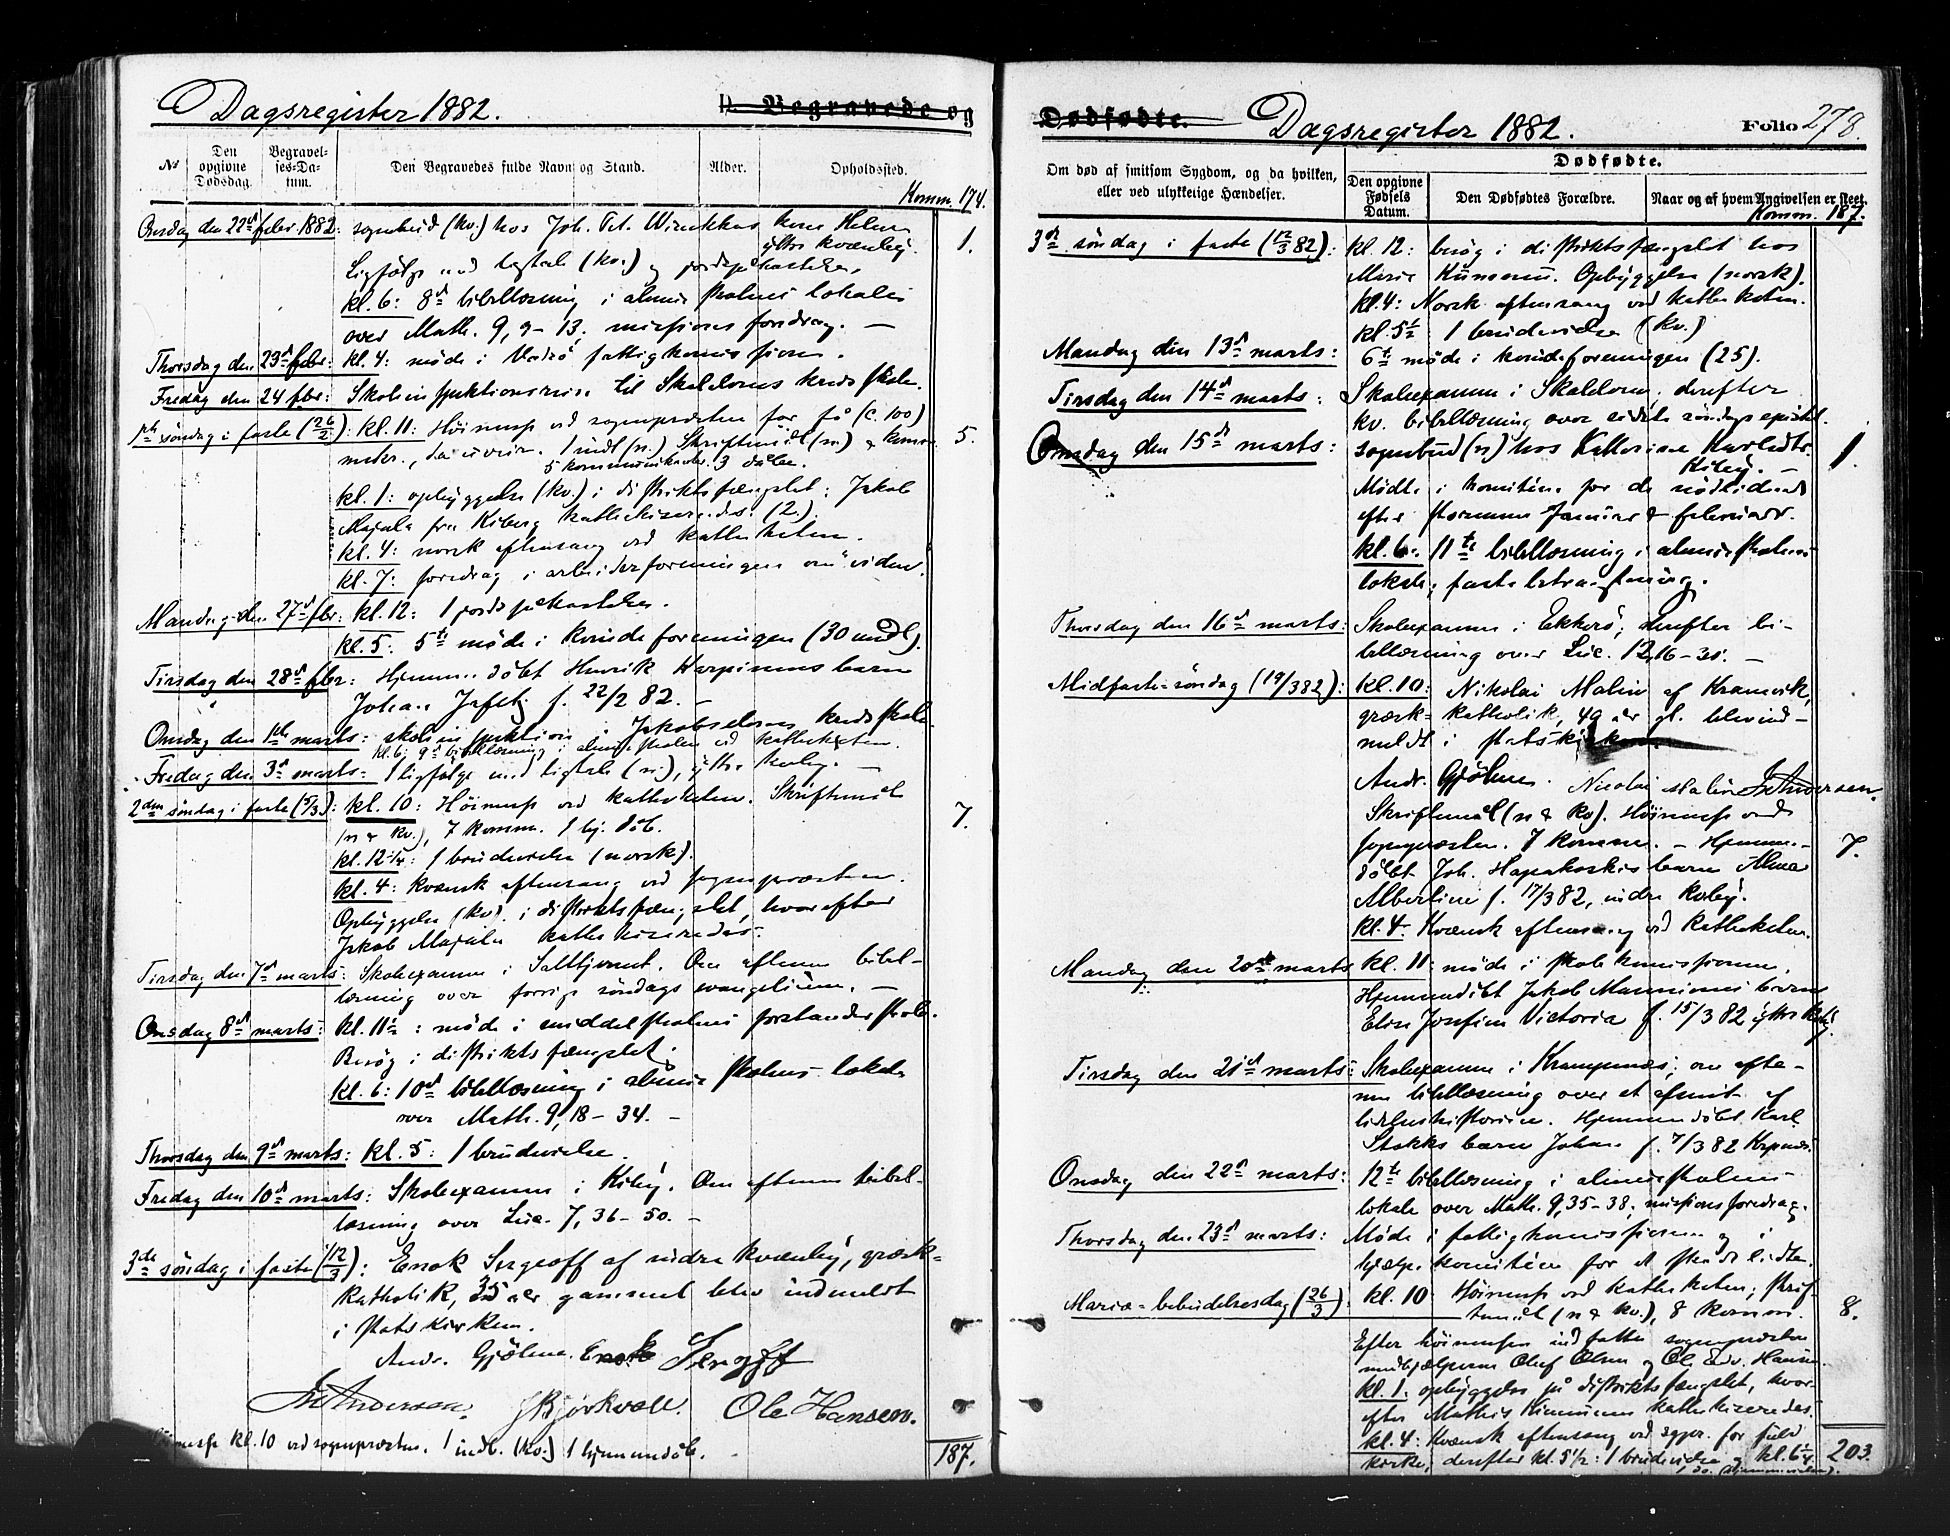 Dagsregister 1882.
D. Begravede og
No
Den opgivne Dødsdag.
Begravelses-Datum.
Den Begravedes fulde Navn og Stand.
Alder.
Opholdssted.
Komm. 174.
Onsdag den 22d febr. 1882: sognebud (kv.) hos Joh. Pet. kone Helena
ytre Kvænby. 1.
Ligfølge med ligtale (kv.) og jordspåkastelse.
kl. 6: 8d bibellæsning i almueskolens lokale
over Math. 9, 9-13, missions foredrag. —
Thorsdag den 23d febr: kl. 4: møde i Vadsø fattigkomission.
Fredag den 24 fbr: Skoleinspektionsreise til Skaldones kredsskole.
1ste søndag i faste (26/2): kl. 11: Høimesse ved sognepræsten for få (c. 100)
5.
5 kommunikanter. 3 dåbe.
kl. 1: opbyggelse (kv.) i distriktsfængslet; Jakob
Majala fra Kiberg kathekiseredes. (2.)
kl. 4: norsk aftensang ved katheketen.
kl. 7: foredrag i arbeiderforeningen om "viden".
Mandag den 27d fbr: kl. 12: 1 jordspåkastelse.
kl. 5: 5te møde i kvindeforeningen (30 medl).
Tirsdag den 28d fbr: Hjemmedøbt Henrik Harpinens barn
Johan Jafet f. 22/2 82. —
Onsdag den 1ste marts: skoleinspektion i Jakobselvens kredsskole.
kl. 6: 9d bibellæsning i almueskolen ved katheketen.
Fredag den 3d marts: 1 ligfølge med ligtale (n.), ytre Kvby. —
2den søndag i faste (5/3): kl. 10: Høimesse ved katheketen. Skriftemål
(n & kv.), 7 komm. 1 hj. dåb. 7.
kl. 12 1/4: 1 brudevielse (norsk).
kl. 4: kvænsk aftensang ved sognepræsten.
Opbyggelse (kv). i distriktsfængslet, hvorefter
Jakob Majala kathekiseredes.
Tirsdag den 7d marts: Skoleexamen i Salttjernet. Om aftenen bibel-
læsning over forrige søndags evangelium. —
Onsdag 8d marts: kl. 11 1/2: møde i middelskolens forstanderskab.
Besøg i distriktsfængslet.
kl. 6: 10d bibellæsning i almueskolens lokale
over Math. 9, 18-34. —
Thorsdag den 9d marts: kl. 5: 1 brudevielse.
Fredag den 10d marts: Skoleexamen i Kiby. Om aftenen bibel-
læsning over Luc. 7, 36-50. —
3de søndag i faste (12/3): Enok Sergeoff af indre Kvænby, græsk-
katholik, 35 aar gammel blev indmeldt
i statskirken.
Andr. Gjølme. Enok Sergoff
Jn Andersen. J Bjørkvall. Ole Hansen.
Høimesse kl. 10 ved sognepræsten. 1 indl. (kv.) 1 hjemmedåb. 187.
Dødfødte.
Dagsregister 1882.
Folio 278.
Om død af smitsom Sygdom, og da hvilken, eller ved ulykkelige Hændelser.
Dødfødte.
Den opgivne Fødsels Datum.
Den Dødfødtes Forældre.
Naar og af hvem Angivelsen er skeet.
Komm. 187.
3de søndag i faste (12/3 82): kl. 12: besøg i distriktsfængslet hos
Opbyggelse (norsk).
kl. 4: Norsk aftensang ved katheketen.
kl. 5 1/2 1 brudevielse (kv.)
Mandag den 13d marts: 6te møde i kvindeforeningen (25).
Tirsdag den 14d marts: Skoleexamen i Skaldone; derefter
kv. bibellæsning over sidste søndags epistel.
Onsdag den 15d marts: sognebud (n) hos Katharina Karlsdtr.
Kiby. — 1.
Møde i komitéen for de nødlidende
efter stormene Januar & februar.
kl. 6: 11te bibellæsning i almueskolens
lokale;
Thorsdag den 16d marts: Skoleexamen i Ekkerø; derefter bi-
bellæsning over Luc. 12, 16-30. —
Midfaste-søndag (19/3 82): kl. 10: Nikolai Malin af Kramvik,
græsk-katholik, 49 aar gl. blev ind-
meldt i statskirken.
Andr. Gjølme. Nicolai Malin Jn Andersen.
Skriftemål (n & kv). Høimesse ved
sognepræsten. 7 komm. — Hjemme-
døbt Joh. Hapakoskis barn Alma 7.
Albertine f. 17/3 82, indre Kvby.
kl. 4: Kvænsk aftensang ved katheketen.
Mandag den 20de marts kl. 11: møde i skolekomissionen.
Hjemmedøbt Jakob Manninens barn
Elise Josefine Victoria f. 15/3 82 ytre Kvby.
Tirsdag den 21de marts: Skoleexamen i Krampenæs; om afte-
nen bibellæsning over et afsnit af
lidelseshistorien. Hjemmedøbt Karl
Stokks barn Johan f. 7/3 82 Krpnæs.
Onsdag den 22d marts: 12te bibellæsning i almueskolens
lokale over Math. 9, 35-38. missions foredrag.
Thorsdag den 23d marts: Møde i fattigkomissionen og i
hjælpekomitéen for de skadelidte.
Mariæ-bebudelsesdag (26/3): kl. 10 Høimesse ved katheketen; skrif-
temål (n & kv.), 8 komm. 8.
Efter høimessen indsatte sognepræsten
medhjælperne Oluf Olsen og Ole Edv. Hansen.
kl. 1. opbyggelse på distriktsfængslet, hvor-
efter Mathis kathekiseredes.
kl. 4: Kvænsk aftensang ved sgpr. for fuld
kirke, derefter kl. 5 1/2: 1 brudevielse og kl. 6 1/4
1 do. (hjemmevielse). 203.